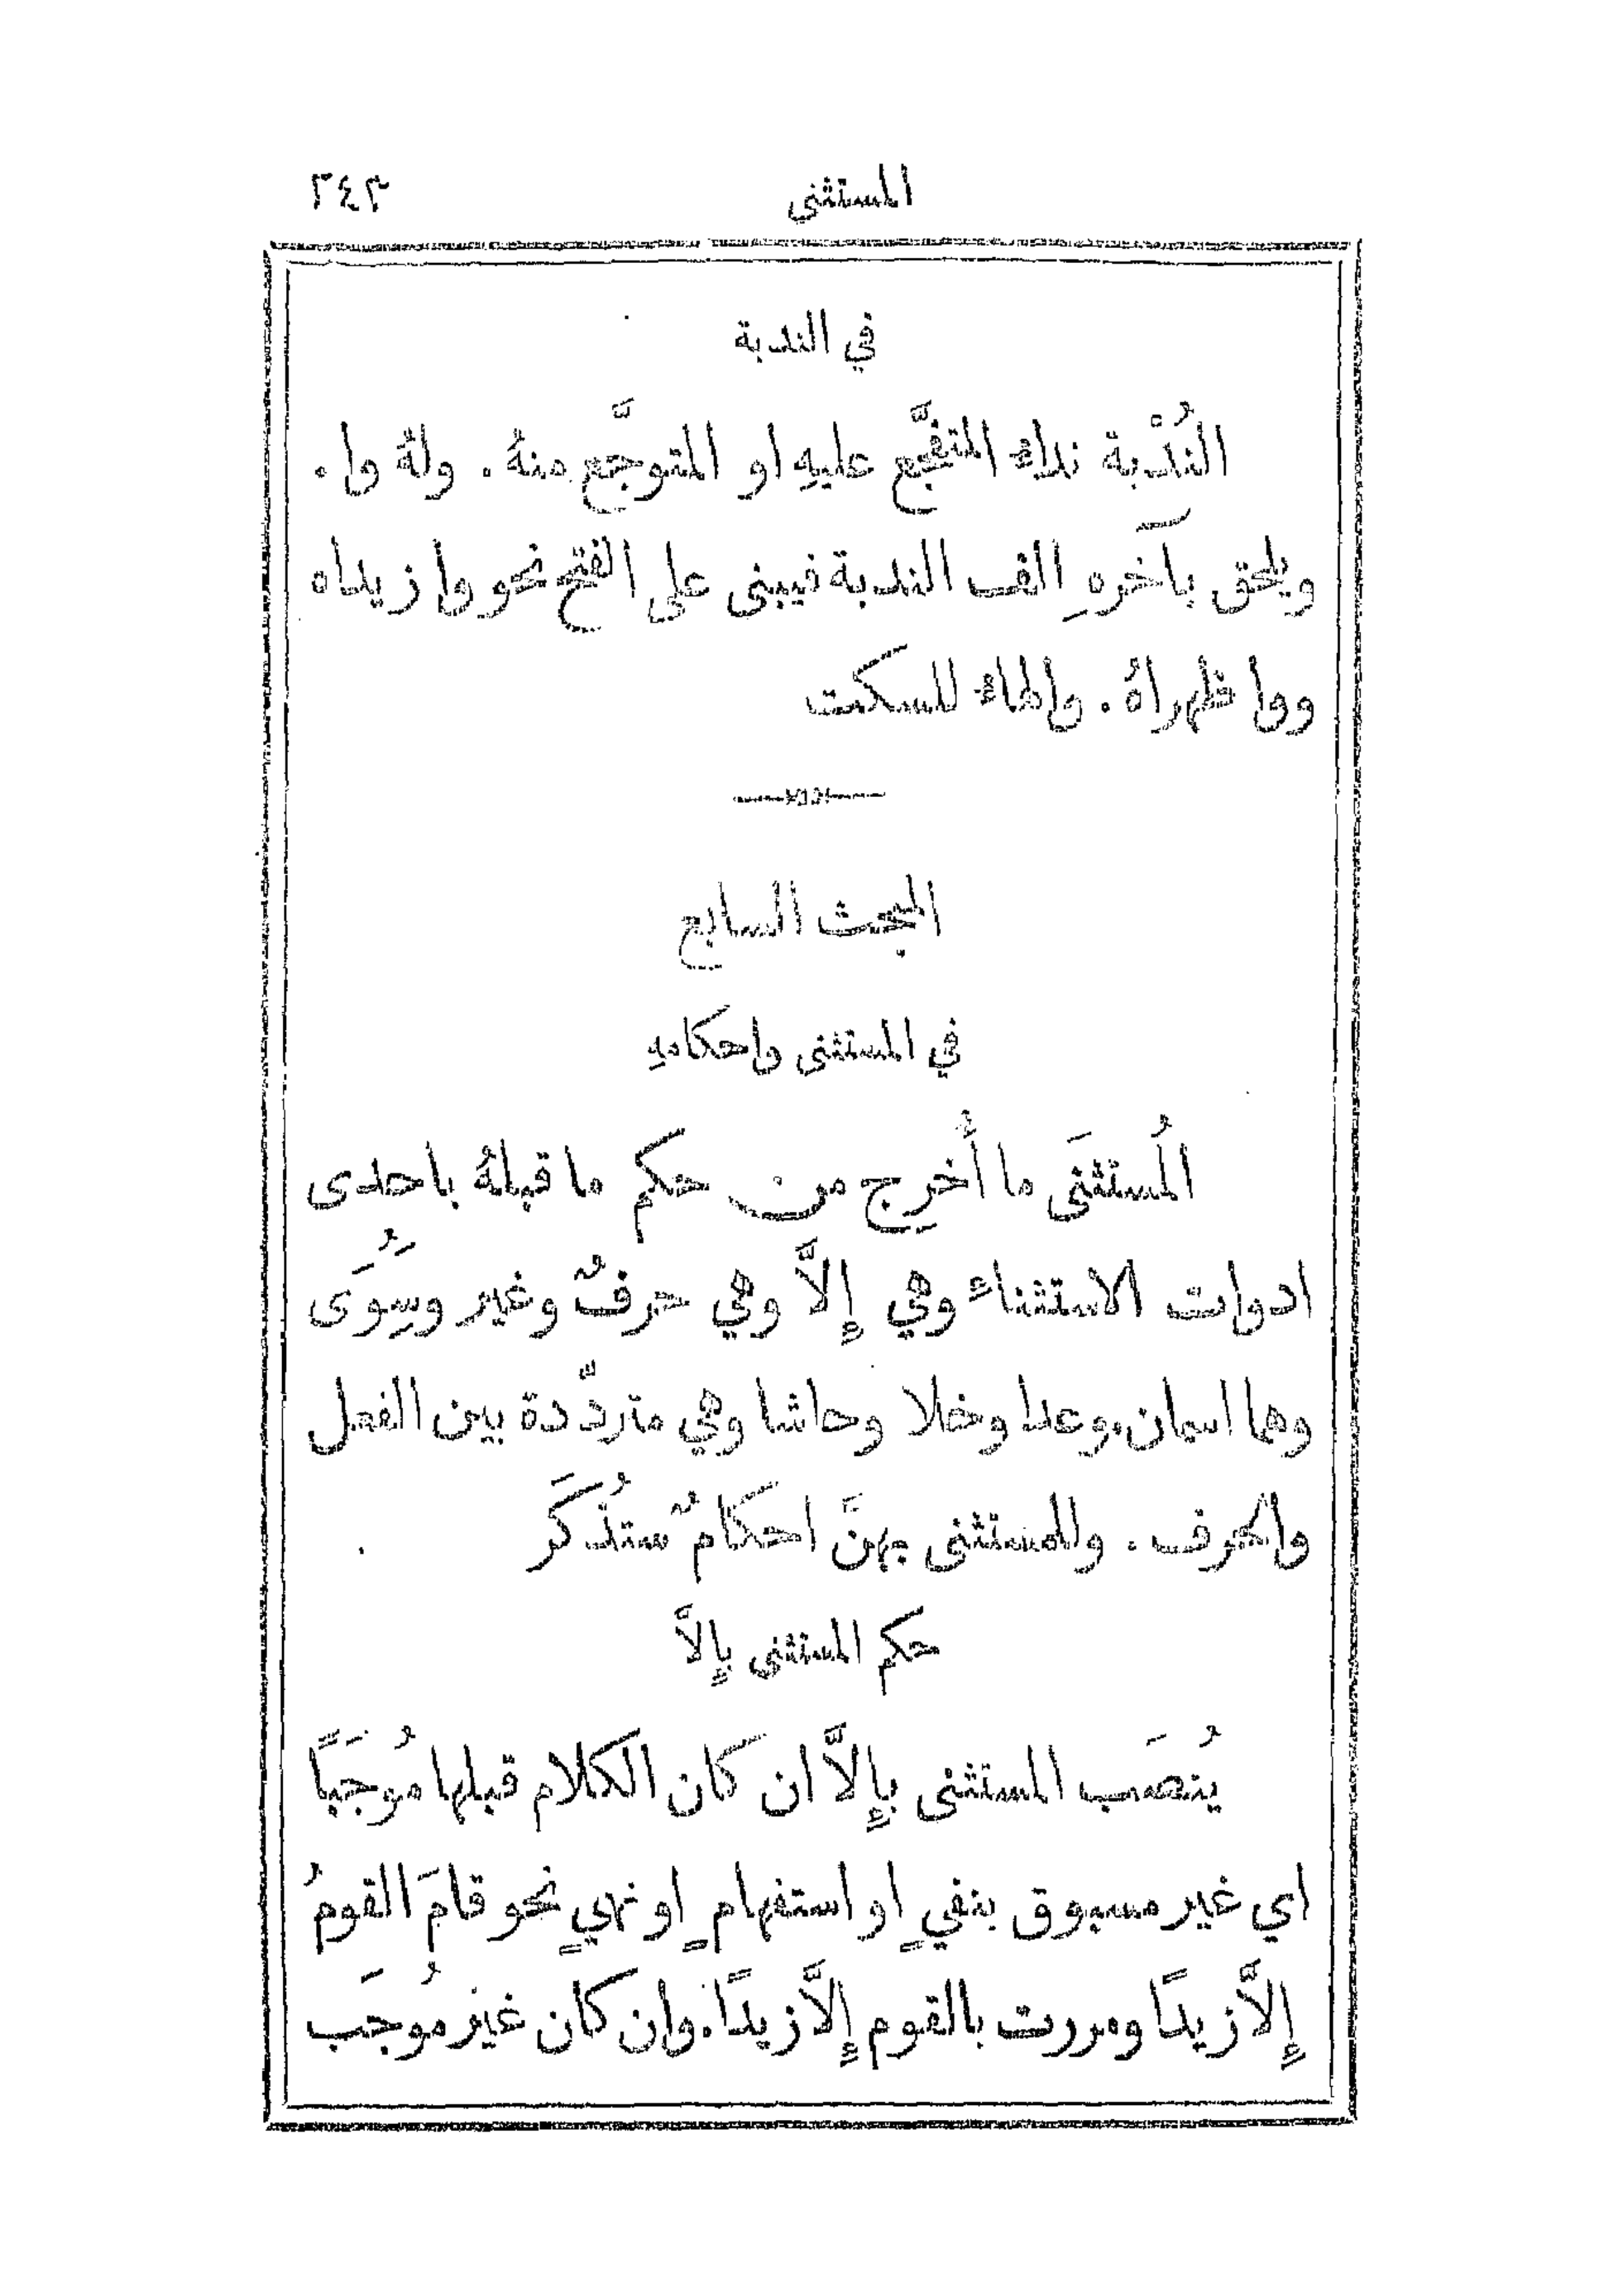 المستثنى ٢٤٣
في الندبة
النُدْبة نداء المتفجَّع عليهِ او المتوجَّع منهُ. ولهُ وا.
ويلحق بآخَرهِ الف الندبة فيبنى على الفتح نحو وا زيداه
ووا ظهراهُ. والهاء للسكت
المبحث السابع
في المستثنى واحكامهِ
المُستثنَى ما أُخرِج من حكم ما قبلهُ باحدى
ادوات الاستثناء وهي إِلاَّ وهي حرفٌ وغير وسِوُى
وهما اسمان. وعدا وخلا وحاشا وهي متردّدة بين الفعل
والحرف. وللمستثنى بهنَّ احكامٌ ستُذكَر
حكم المستثنى بإِلاَّ
يُنصَب المستثنى بإِلاَّ ان كان الكلام قبلها مُوجَبًا
اي غير مسبوق بنفيٍ او استفهامٍ او نهيٍ نحو قامَ القومُ
إِلاَّ زيدًا ومررت بالقوم إِلاَّ زيدًا. وان كان غير مُوجَب